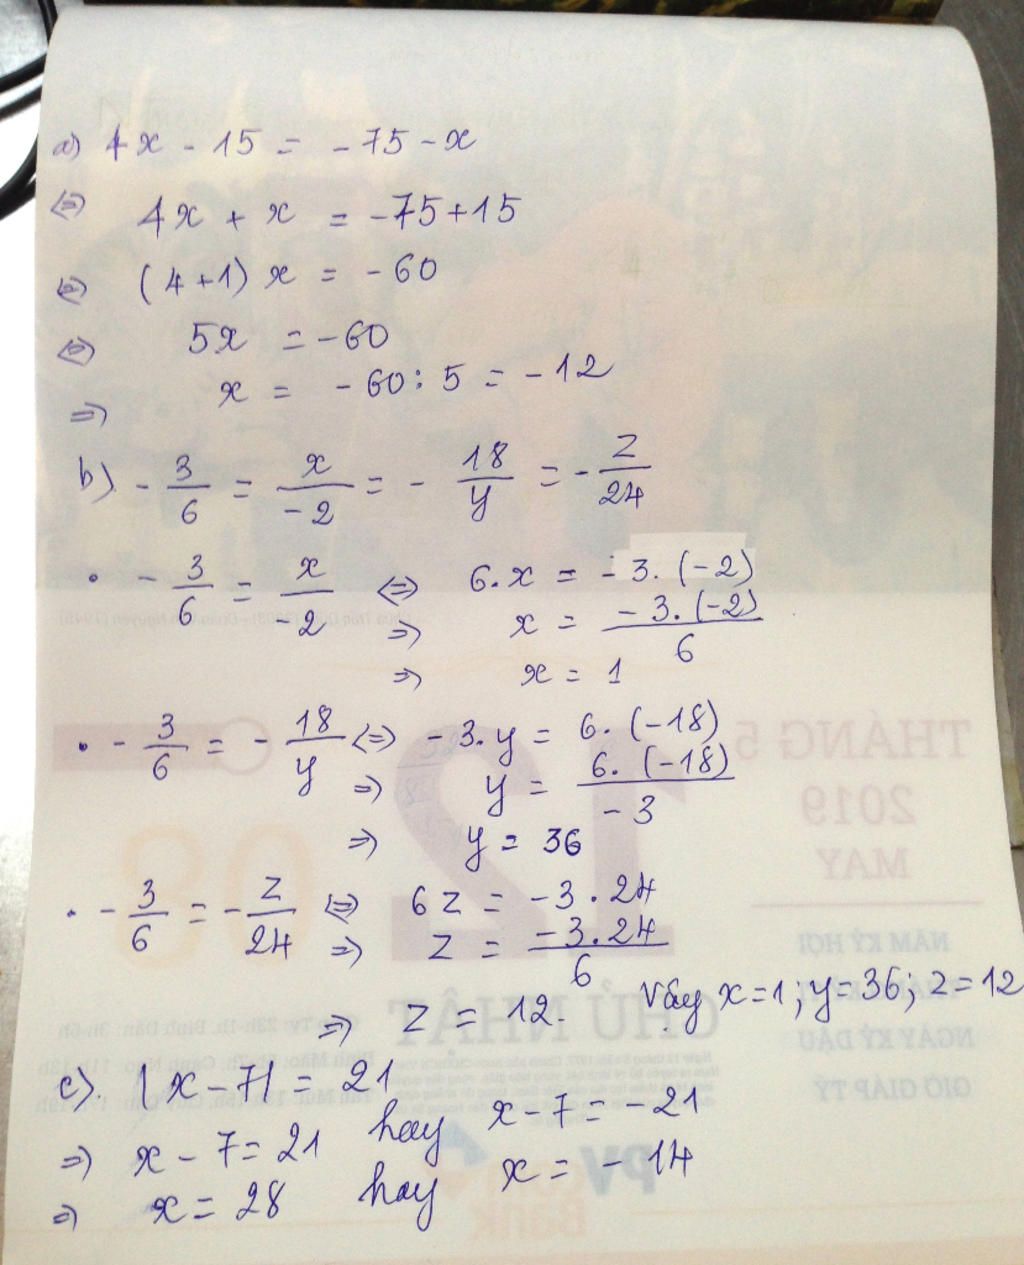 a) 4x - 15 = - 75 - x
⇔ 4x + x = -75 + 15
⇔ (4+1) x = - 60
⇔ 5x = - 60
⇒ x = - 60 : 5 = - 12
b) - 3/6 = x/-2 = - 18/y = - z/24
• - 3/6 = x/-2 ⇔ 6.x = - 3. (-2)
⇒ x = - 3. (-2)/6
⇒ x = 1
• - 3/6 = - 18/y ⇔ - 3.y = 6. (-18)
⇒ y = 6. (-18)/- 3
⇒ y = 36
• - 3/6 = - z/24 ⇔ 6z = - 3 . 24
⇒ z = - 3. 24/6
⇒ z = 12. Vậy x = 1 ; y = 36 ; z = 12
c). |x - 7| = 21
⇒ x - 7 = 21 hay x - 7 = - 21
⇒ x = 28 hay x = - 14
THÁNG 5
2019
MAY
12
08
CHỦ NHẬT
NĂM KỶ HỢI
NGÀY KỶ DẬU
GIỜ GIÁP TÝ
PV
Bank